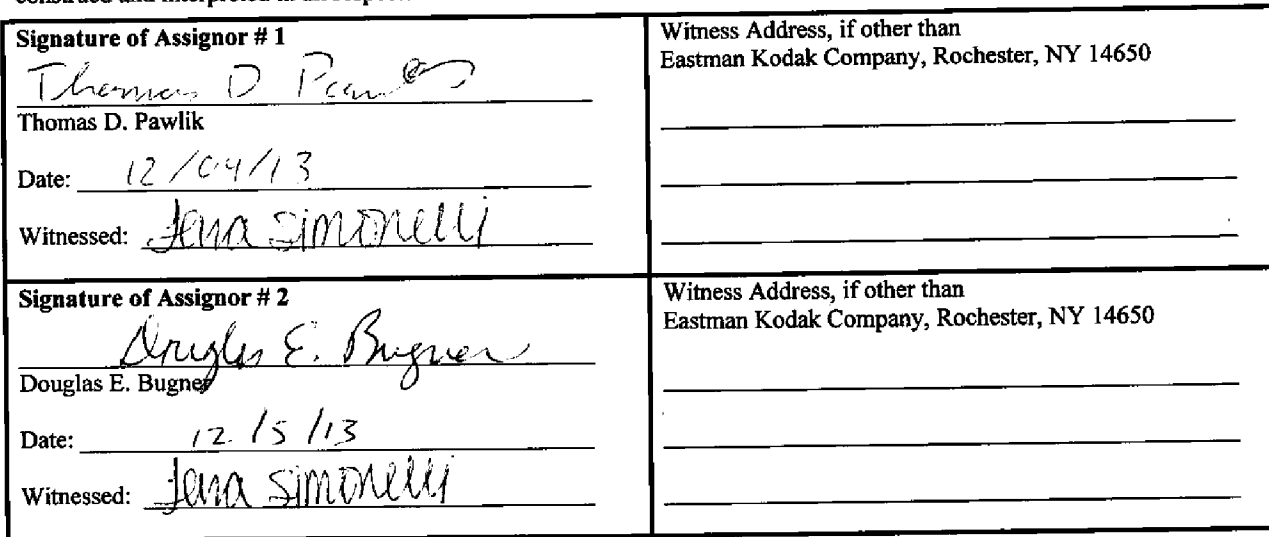 Signature of Assignor # 1
Thomas D Pawlik
Thomas D. Pawlik
Date: 12/04/13
Witnessed: Jena Simonelli
Witness Address, if other than
Eastman Kodak Company, Rochester, NY 14650
Signature of Assignor # 2
Douglas E. Bugner
Douglas E. Bugner
Date: 12/5/13
Witnessed: Jena Simonelli
Witness Address, if other than
Eastman Kodak Company, Rochester, NY 14650